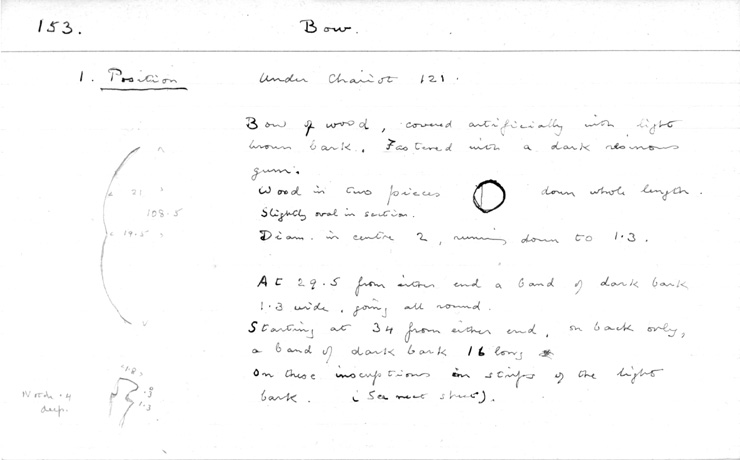 153. Bow.
1. Position Under Chariot 121.
Bow of wood, covered artificially with light
brown bark. Fastened with a dark resinous
gum.
Wood in two pieces down whole length.
Slightly oval in section.
Diam. in centre 2, running down to 1.3.
21
108.5
19.5
At 29.5 from either end a band of dark bark
1.3 wide, going all round.
Starting at 34 from either end, on back only,
a band of dark bark 16 long
On these inscriptions in strips of the light
bark. (See next sheet).
1.8
.9
1.3
.4
deep.